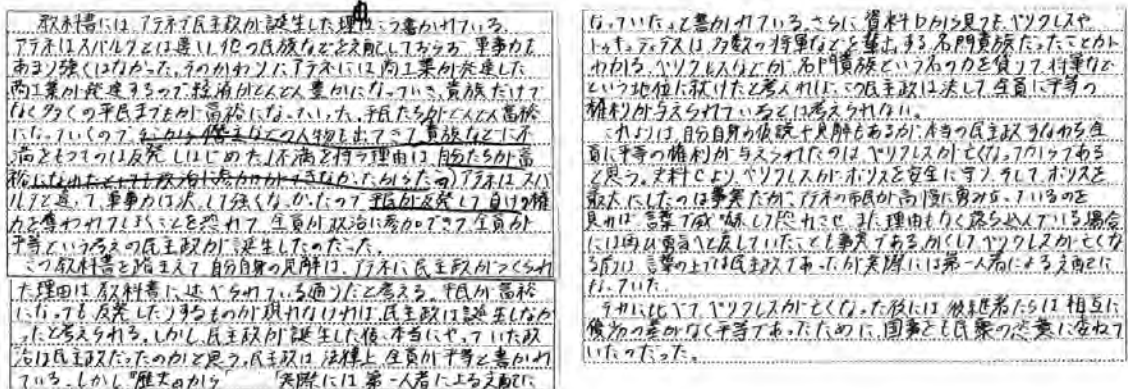 教科書には、アテネで民主政が誕生した理由こう書かれている。
アテネはスパルタとは違い、他の民族などを支配しておらず、軍事力も
あまり強くはなかった。そのかわりにアテネには、商工業が発達した
商工業が発達するので、経済がどんどん豊かになっていき、貴族だけで
なく多くの平民までもが富裕になっていった。平民たちがどんどん富裕
になっていくので、貴族などに不
満をもつものは反発しはじめた。(不満を持つ理由は、自分たちが富
裕になれたとしても政治に参加ができなかったからだ。)アテネはスパ
ルタと違って、軍事力は決して強くなかったので、平民が反発して自ら権
力を奪われてしまうことを恐れて、全員が政治に参加できて全員が
平等という考えの民主政が誕生したのだった。
この教科書を踏まえて、自分自身の見解は、アテネに民主政がつくられ
た理由は、教科書に述べられている通りだと考える。平民が富裕
になっても反発したりするものが現れなければ、民主政は誕生しなか
ったと考えられる。しかし、民主政が誕生した後、本当にやっていた政
治は民主政だったのかと思う。民主政は、法律上、全員が平等と書かれ
ている。しかし"歴史"から「実際には第一人者による支配に
なっていた」と書かれている。さらに資料Dから見ても、ペリクレスや
トゥキュディデスは、多数の将軍などを輩出する名門貴族だったことが
わかる。ペリクレスなどが、名門貴族という名の力を借りて将軍など
という地位に就けたと考えれば、この民主政は決して全員に平等の
権利が与えられているとは考えられない。
これよりは、自分自身の仮説や見解もあるが、本当の民主政すなわち全
員に平等の権利が与えられたのは、ペリクレスが亡くなってからである
と思う。史料Cより、ペリクレスがポリスを安全に守り、そしてポリスを
最大にしたのは事実だが、アテネの市民が高慢に勇み立っているのを
見れば、言葉で威嚇して恐れさせ、また理由もなく落ち込んでいる場合
には再び勇気へと戻していたことも事実である。かくして、ペリクレスが亡くな
る前は、言葉の上では民主政であったが、実際には第一人者による支配に
なっていた。
それに比べて、ペリクレスが亡くなった後には、後継者たちは相互に
優劣の差がなく平等であったために、国事をも民衆の恣意に委ねて
いたのだった。